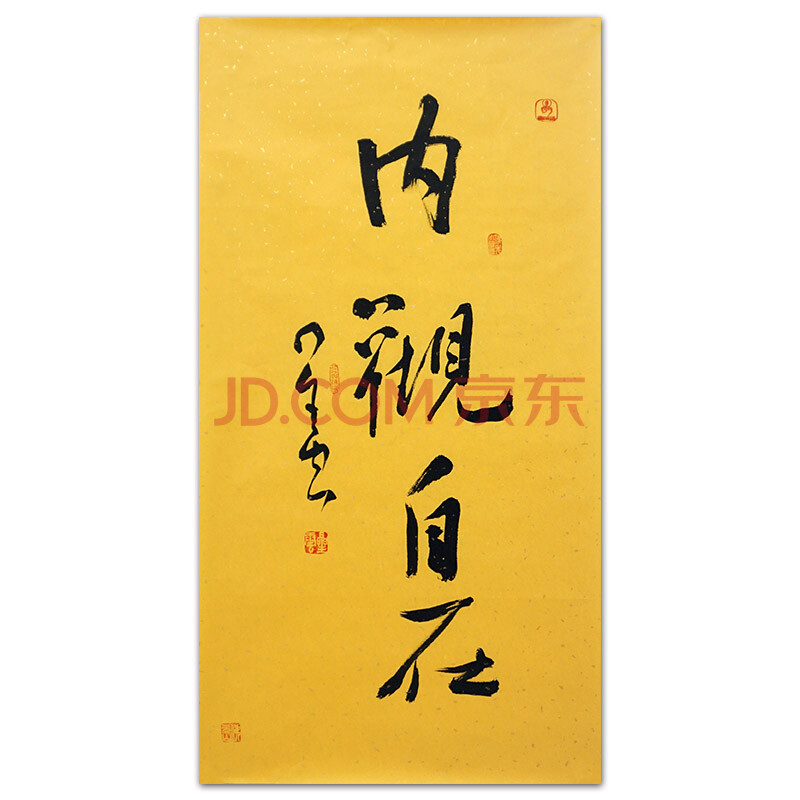 内觀自在
星雲
JD.COM 京东